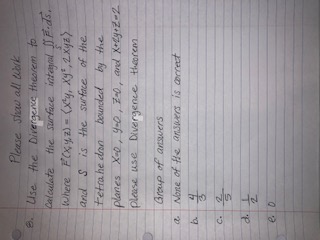 Please show all work
8. Use the Divergence theorem to
Calculate the surface integral ∬ F·ds,
Where F(x,y,z) = ⟨x²y, xy², 2xyz⟩
and S is the surface of the
tetrahedron bounded by the
planes x=0, y=0, z=0, and x+2y+z=2
Please use Divergence theorem
Group of answers
a. None of the answers is correct
b. 4/3
c. 2/5
d. 1/2
e. 0